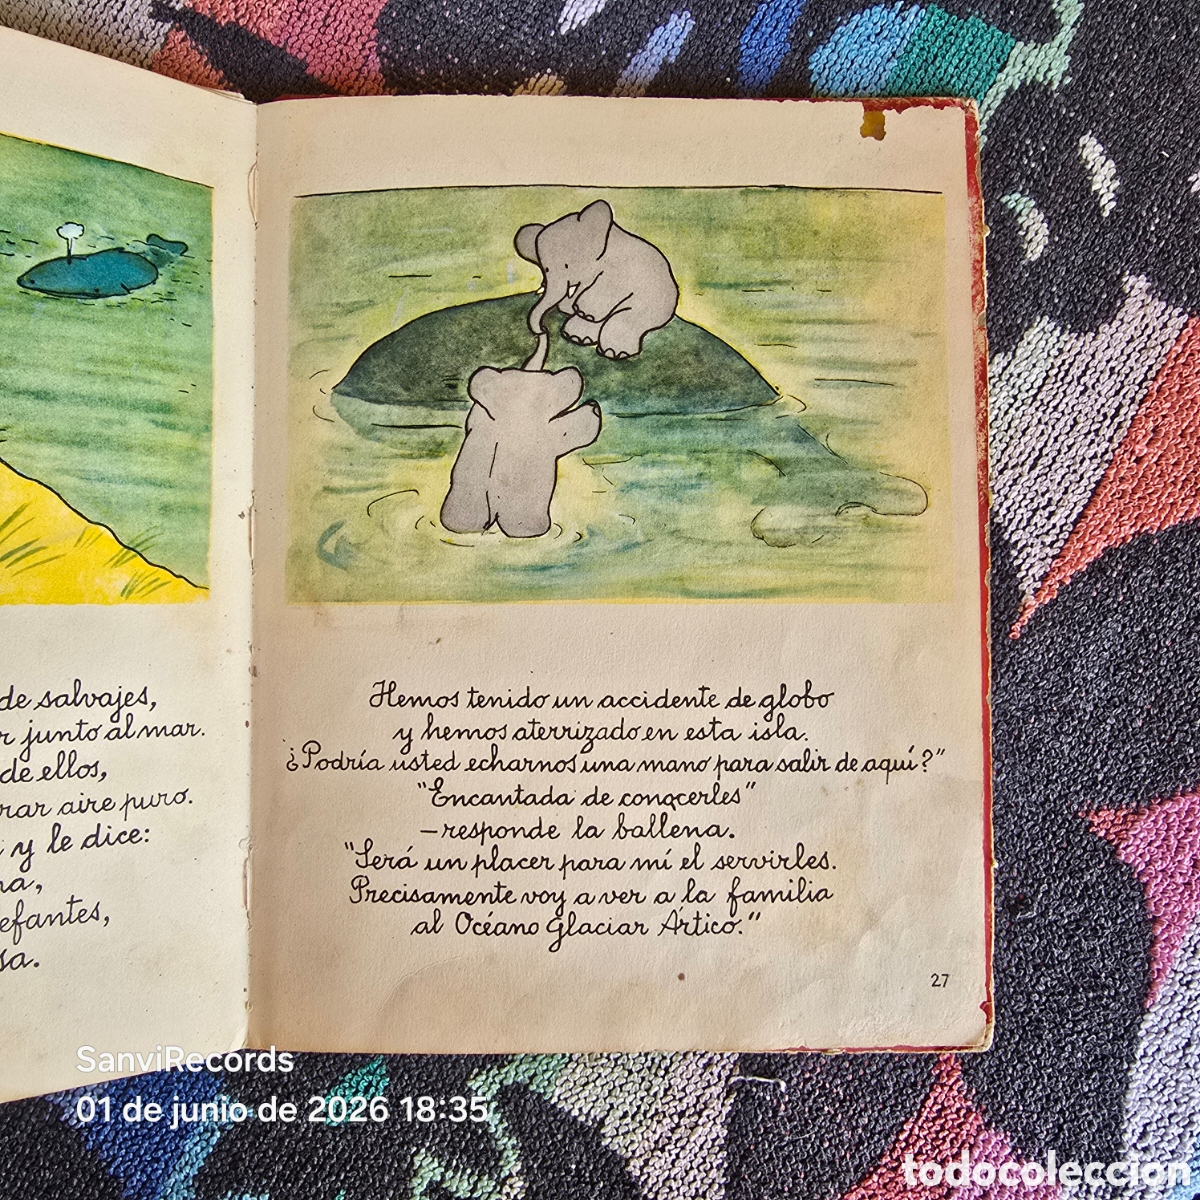 de salvajes,
junto al mar.
de ellos,
aire puro.
y le dice:
Hemos tenido un accidente de globo
y hemos aterrizado en esta isla.
¿Podría usted echarnos una mano para salir de aquí?"
"Encantada de conocerles"
—responde la ballena.
"Será un placer para mí el servirles.
Precisamente voy a ver a la familia
al Océano Glaciar Ártico."
27
SanviRecords
01 de junio de 2026 18:35
todocoleccion